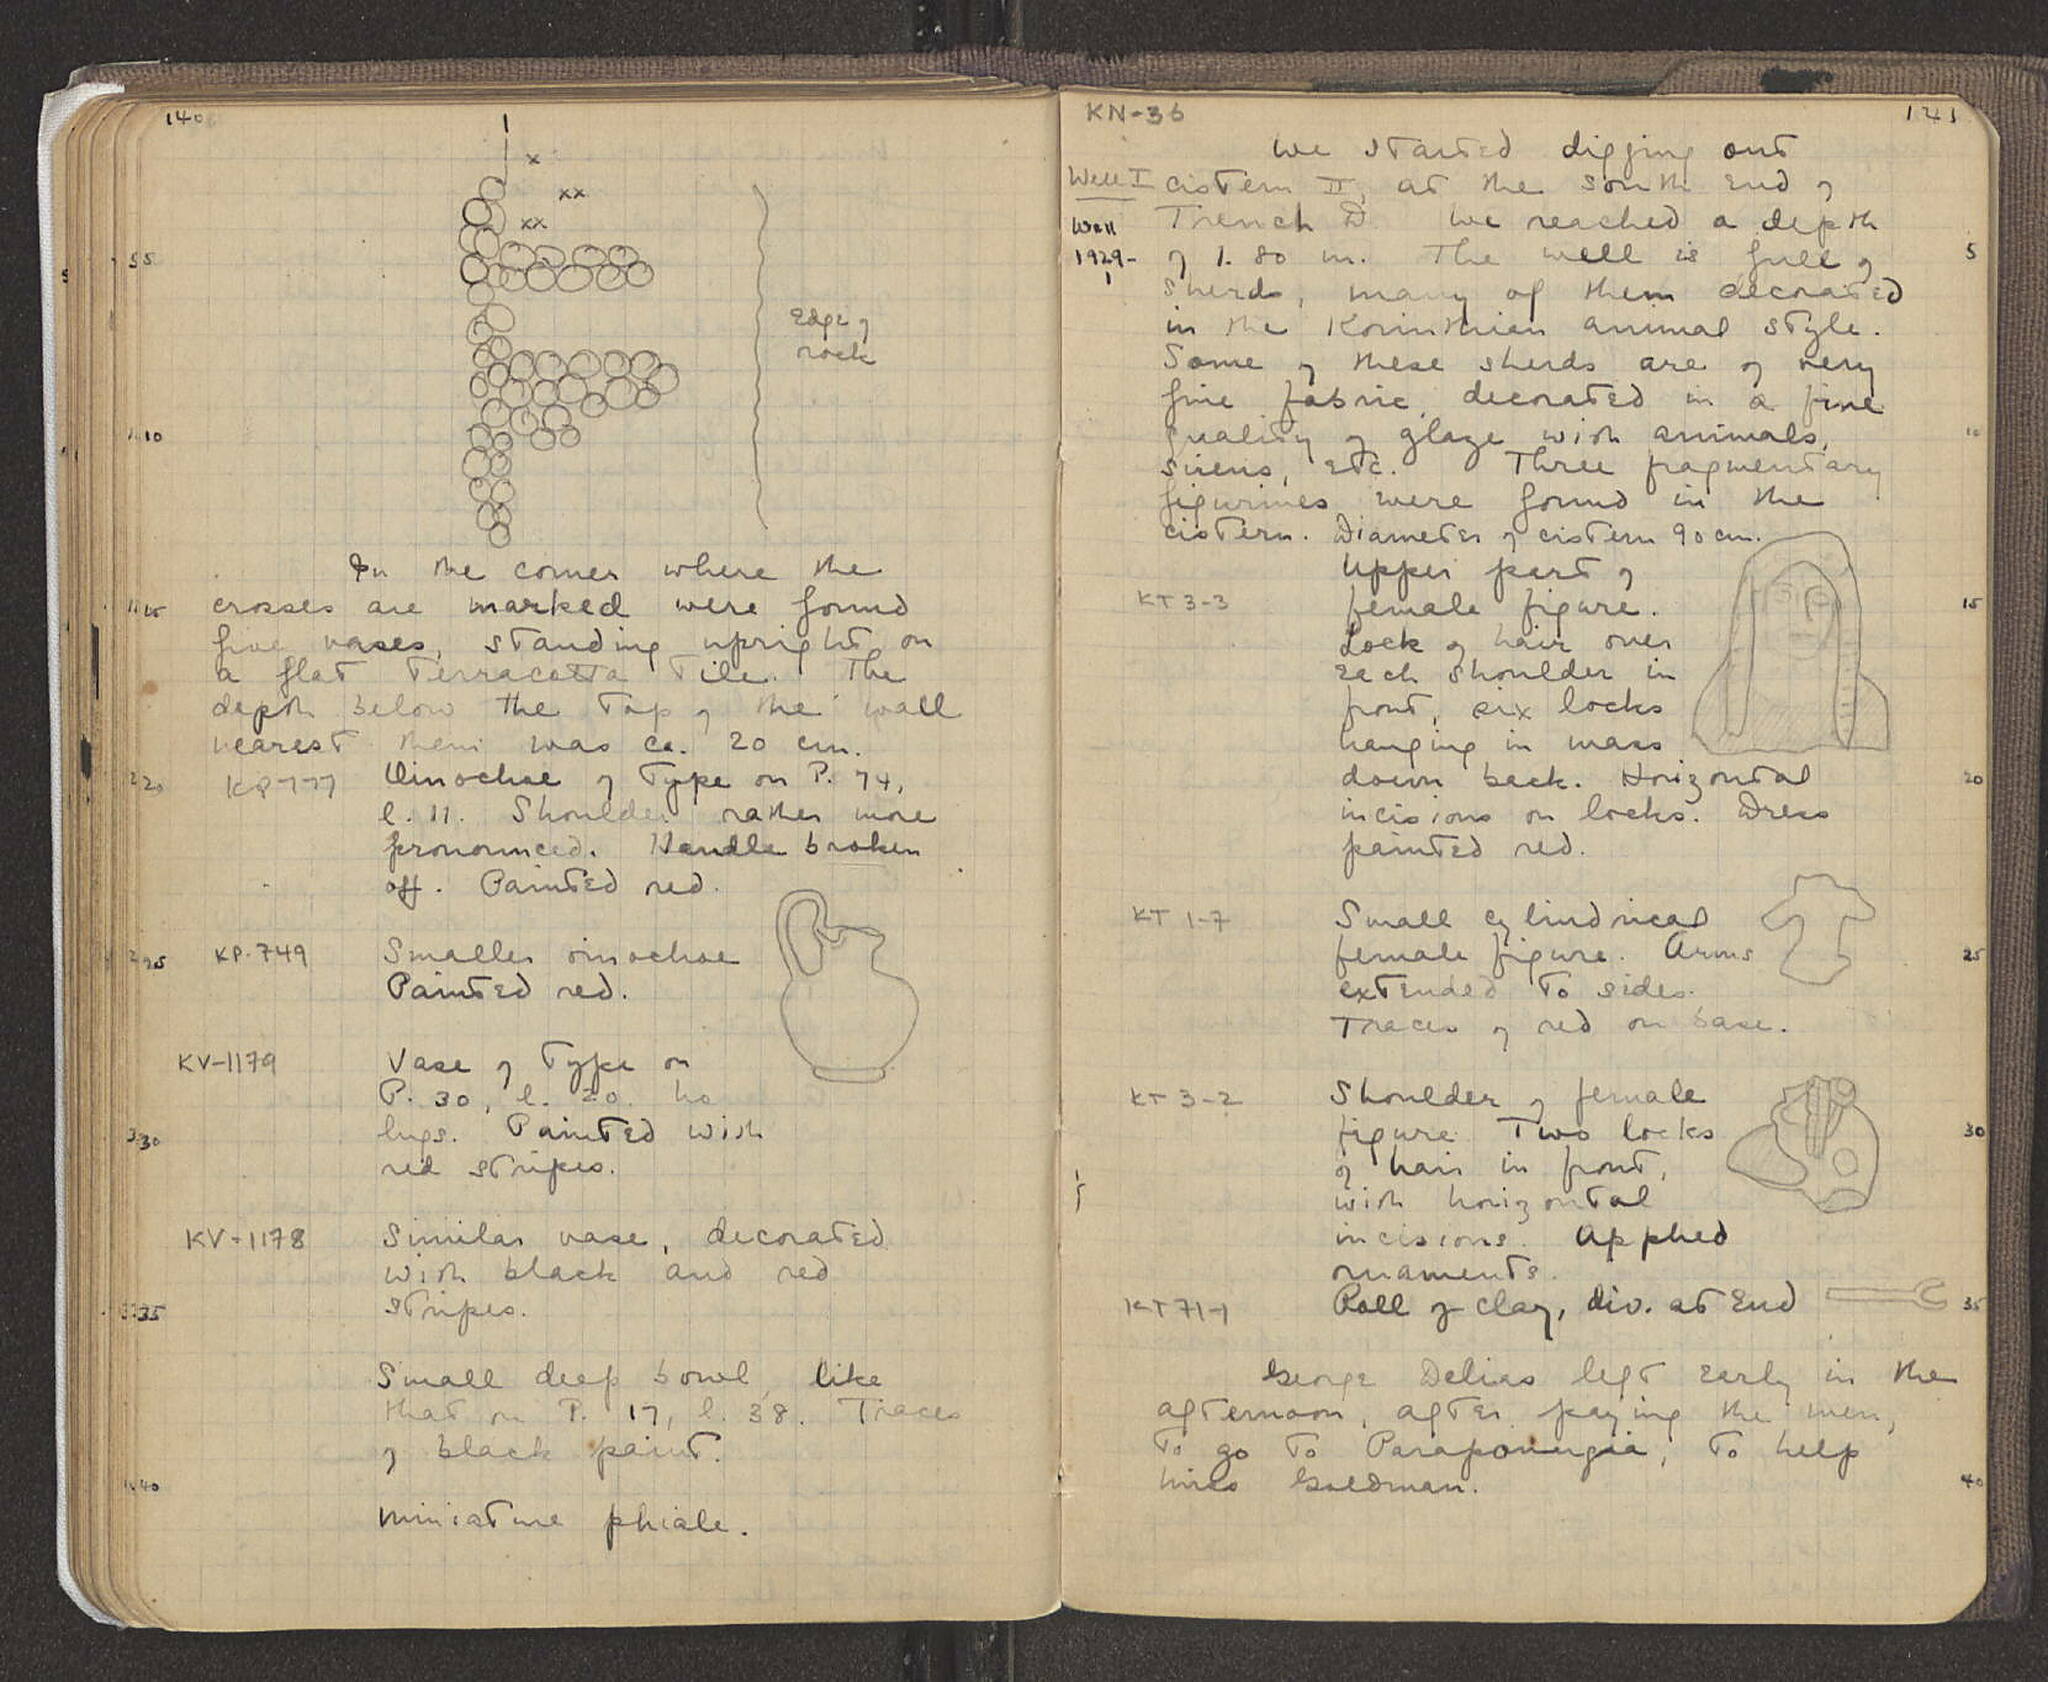 140
5
10
15
20
25
30
35
40
Edge of
rock
In the corner where the
crosses are marked were found
five vases, standing upright on
a flat terracotta tile. The
depth below the top of the wall
nearest them was ca. 20 cm.
KP-777 Oinochoe of type on P. 74,
l. 11. Shoulder rather more
pronounced. Handle broken
off. Painted red.
KP-749 Smaller oinochoe
Painted red.
KV-1179 Vase of type on
P. 30, l. 20. No
lugs. Painted with
red stripes.
KV-1178 Similar vase, decorated
with black and red
stripes.
Small deep bowl, like
that on P. 17, l. 38. Traces
of black paint.
Miniature phiale.
KN-36 141
We started digging out
Well I cistern II, at the south end of
Well Trench D. We reached a depth
1929- of 1.80 m. The well is full of 5
1 sherds, many of them decorated
in the Korinthian animal style.
Some of these sherds are of very
fine fabric, decorated in a fine
quality of glaze with animals, 10
sirens, etc. Three fragmentary
figurines were found in the
cistern. Diameter of cistern 90 cm.
Upper part of
KT 3-3 female figure. 15
Lock of hair over
each shoulder in
front, six locks
hanging in mass
down back. Horizontal 20
incisions on locks. Dress
painted red.
KT 1-7 Small cylindrical
female figure. Arms 25
extended to sides.
Traces of red on base.
KT 3-2 Shoulder of female
figure. Two locks 30
of hair in front,
with horizontal
incisions. Applied
ornaments.
KT 71-1 Roll of clay, div. at end 35
George Delias left early in the
afternoon, after paying the men,
to go to Parapoungia, to help
Miss Goldman. 40